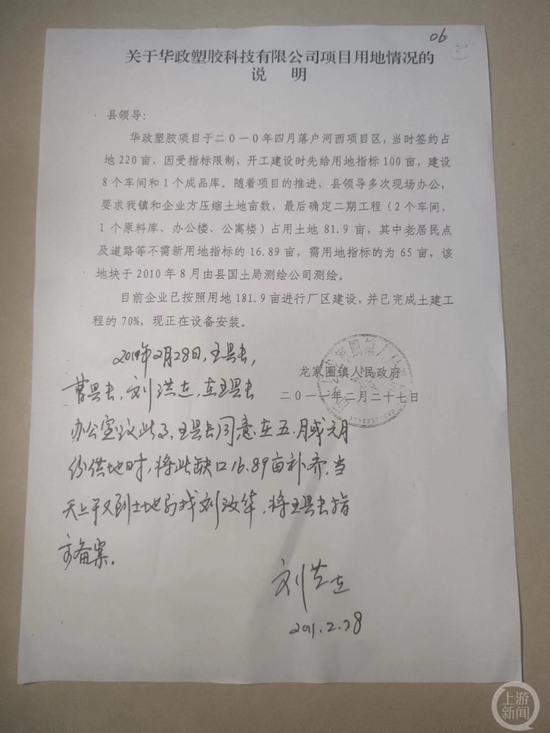 06
关于华政塑胶科技有限公司项目用地情况的
说 明
县领导：
华政塑胶项目于二〇一〇年四月落户河西项目区，当时签约占
地220亩，因受指标限制，开工建设时先给用地指标100亩，建设
8个车间和1个成品库。随着项目的推进，县领导多次现场办公，
要求我镇和企业方压缩土地亩数，最后确定二期工程（2个车间、
1个原料库、办公楼、公寓楼）占用土地81.9亩，其中老居民点
及道路等不需新用地指标的16.89亩，需用地指标的为65亩，该
地块于2010年8月由县国土局测绘公司测绘。
目前企业已按照用地181.9亩进行厂区建设，并已完成土建工
程的70%，现正在设备安装。
龙家圈镇人民政府
二〇一一年二月二十七日
2011年2月28日，王县长，
曹县长，刘洪志，在王县长
办公室议此事，王县长同意在五.月或六月
份供地时，将此缺口16.89亩补齐，当
天上午又到土地局找刘改华，将王县长指
示备案。
刘
2011.2.28
上游新闻